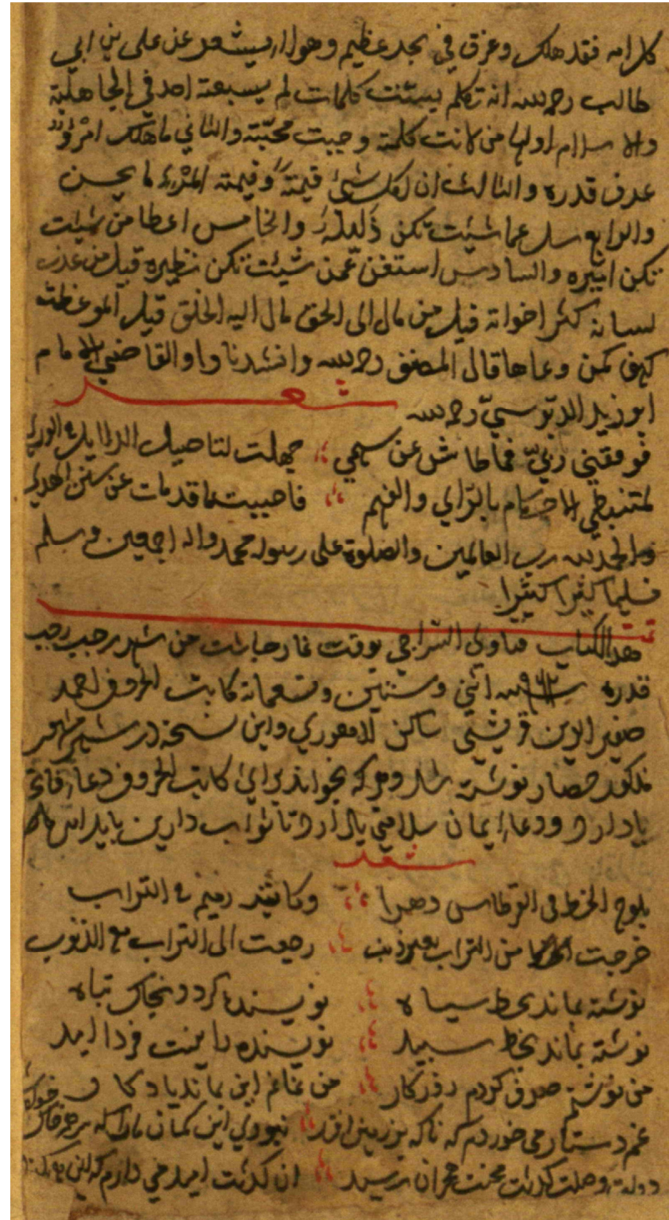 فقد هلك وغرق في بحر عظيم وهو عن على بن ابي
طالب رحمه الله انه تكلم بستت كلمات لم يسبقه احد في الجاهلية
والاسلام اولها من لانت كلمته وجبت محبته والثاني ما هلك امرؤ
عرف قدره والثالث ان لكل شئ قيمة وقيمة المرء ما يحسن
والرابع سل عما شيئت تكن ذليله والخامس اعطا من شيئت
تكن اميره والسادس استغن عمن شيئت تكن نظيره قيل من عذب
لسانه كثر اخوانه قيل من مال الى الحق مال اليه الخلق قيل الموعظة
كهف لمن وعاها قال المصنف رحمه الله وانشدنا القاضي الامام
ابو زيد الدبوسي رحمه الله شعر
فوفقني ربي فما طاش عن سهمي جهلت لتاصيل الدلايل في الورى
بالراي والفهم فاحييت ما قد مات عن سنن الهدى
والحمد لله رب العالمين والصلوة على رسوله محمد واله اجمعين وسلم
كثيرا كثيرا
تمت
هذا الكتاب فتاوى السراجي بوقت نماز من شهر رجب رجب
قدره سنه اثني وستين وتسعمائة كاتب الحروف احمد
صغير الدين قريشي ساكن واين نسخه در شهر
مذكور حصار نوشته شد وهر كه بخواند براي كاتب الحروف دعا فاتح
ياد ارد ودعا ايمان سلامتي ياد ارد تا ثواب دارين يابد
شعر
يلوح الخط في القرطاس دهرا وكاتبه رميم في التراب
خرجت من التراب بغير ذنب رجعت الى التراب مع الذنوب
نوشته بماند بخط سياه نويسنده كردد بخاك تباه
نوشته بماند بخط سپيد نويسنده را نيست فردا اميد
من نوشتم صرف كردم روزكار من نمانم اين بماند ياد كار
غم دستار مي خوردم كه ناكه
دولت وصلت كذشت محنت هجران رسيد ان كذشت اميد مي دارم كه اين